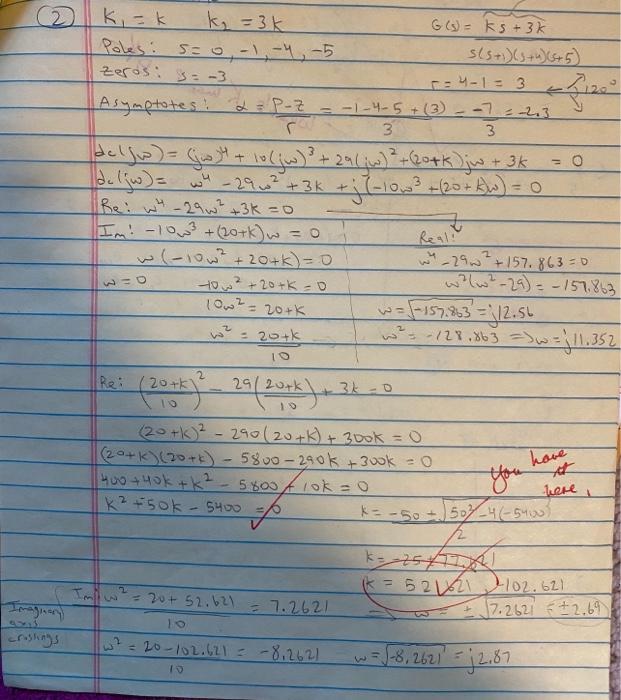 ② K₁ = K K₂ = 3K G(s) = Ks + 3K
Poles: s = 0, -1, -4, -5 s(s+1)(s+4)(s+5)
zeros: s = -3
r = 4-1 = 3 120°
Asymptotes: α = P-Z / r = -1-4-5+(3) / 3 = -7 / 3 = -2.3
dc(jω) = (jω)⁴ + 10(jω)³ + 29(jω)² + (20+K)jω + 3K = 0
dc(jω) = ω⁴ - 29ω² + 3K + j(-10ω³ + (20+K)ω) = 0
Re: ω⁴ - 29ω² + 3K = 0
Im: -10ω³ + (20+K)ω = 0
ω(-10ω² + 20+K) = 0
ω = 0 -10ω² + 20+K = 0
10ω² = 20+K
ω² = 20+K / 10
Real:
ω⁴ - 29ω² + 157.863 = 0
ω²(ω² - 29) = -157.863
ω = √-157.863 = j12.56
ω² = -128.863 => ω = j11.352
Re: (20+K / 10)² - 29(20+K / 10) + 3K = 0
(20+K)² - 290(20+K) + 300K = 0
(20+K)(20+K) - 5800 - 290K + 300K = 0
400 + 40K + K² - 5800 + 10K = 0
K² + 50K - 5400 = 0
you have it here,
K = -50 ± √50² - 4(-5400) / 2
K = -25 ± 77.621
K = 52.621, -102.621
Imaginary axis crossings
Im: ω² = 20 + 52.621 / 10 = 7.2621 → ω = ±√7.2621 = ±2.69
ω² = 20 - 102.621 / 10 = -8.2621 ω = √-8.2621 = j2.87